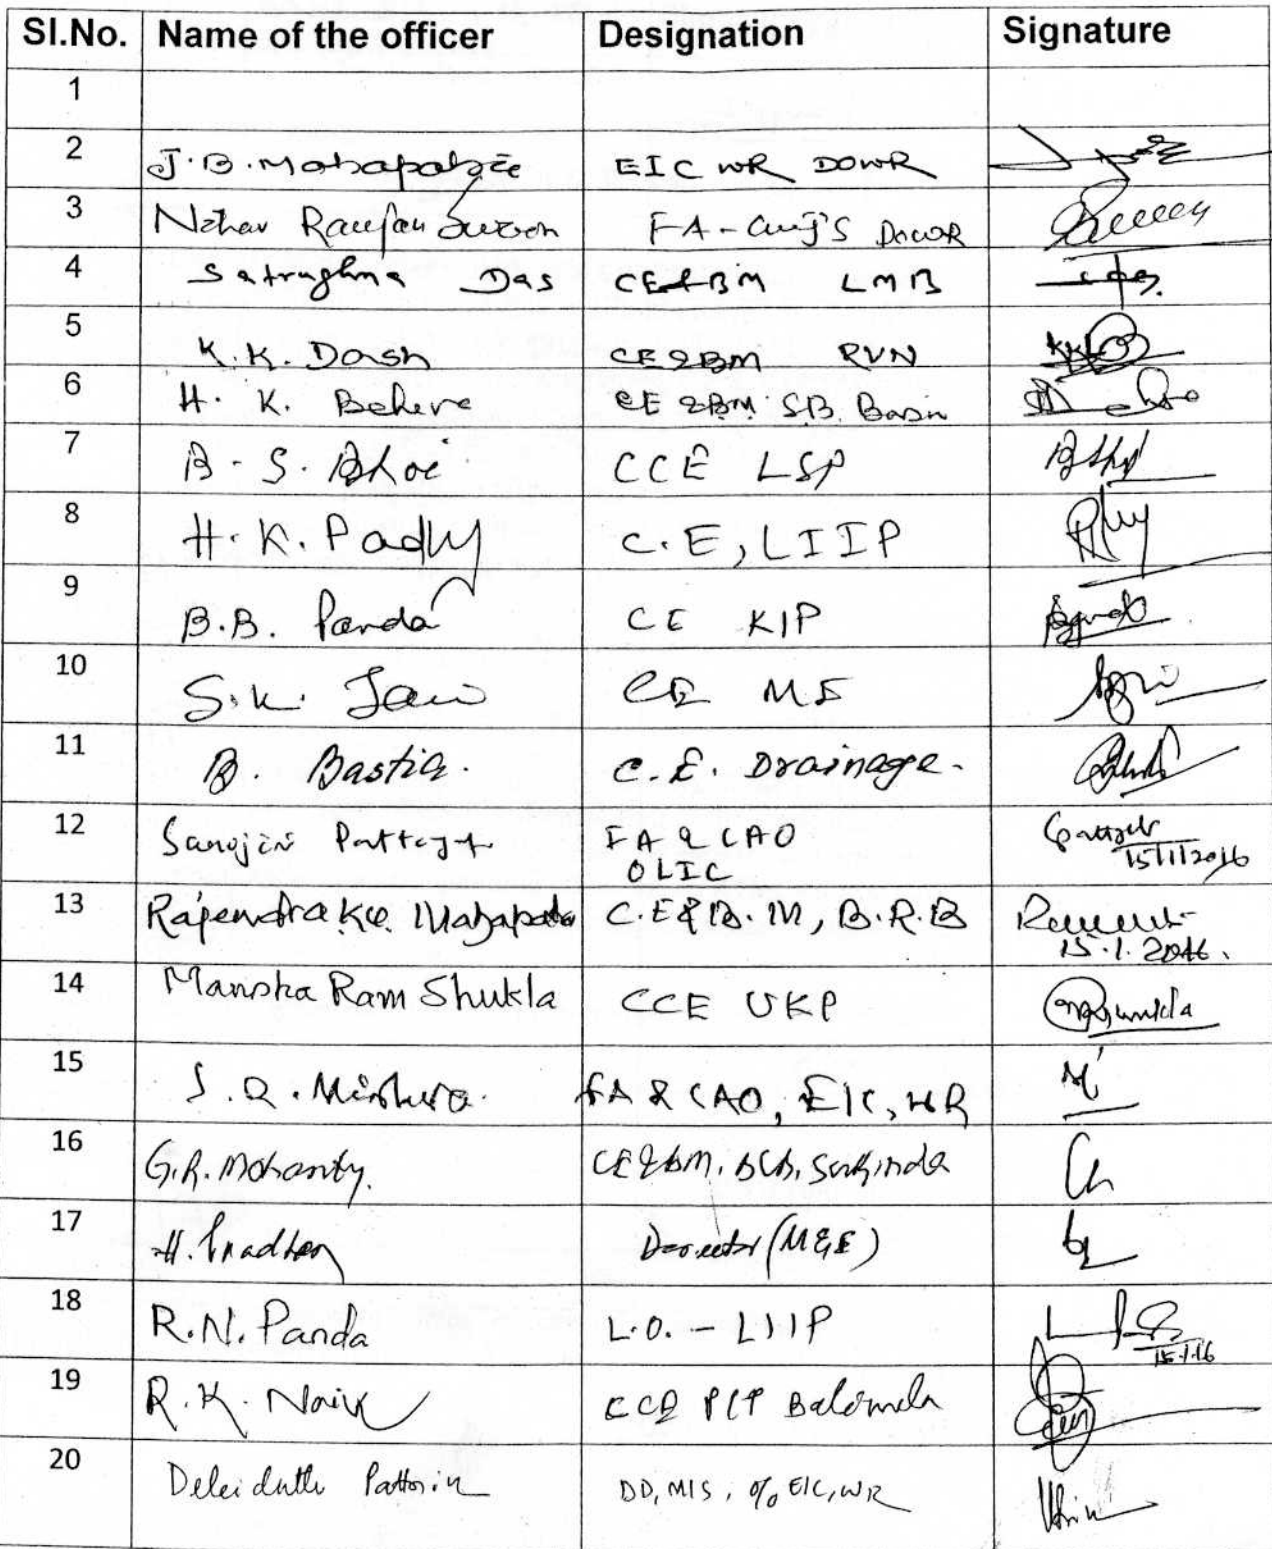 Sl.No. Name of the officer Designation Signature
1
2 J.B. Mohapatra EIC WR DOWR
3 Ranjan FA- DoWR
4 Satrughna Das CE&BM LMB
5 K.K. Dash CE&BM RVN
6 H. K. Behera CE &BM SB. Basin
7 B. S. Bhoi CCE LSP
8 H.K. Padhy C.E, LIIP
9 B.B. Panda CE KIP
10 S.K. CE MI
11 B. Bastia. C.E. Drainage.
12 Sarojini FA & CAO
OLIC
15/1/2016
13 Rajendra Ku. Mahapatra C.E & B.M, B.R.B
15.1.2016.
14 Mansha Ram Shukla CCE UKP
15 S. R. Mishra. FA & CAO, EIC, WR
16 G.R. Mohanty. CE&BM, Sukinda
17 H. Pradhan Director (M&E)
18 R.N. Panda L.O. - LIIP
15.1.16
19 R.K. Naik CCE PCP Balimela
20 DD, MIS, O/o EIC, WR